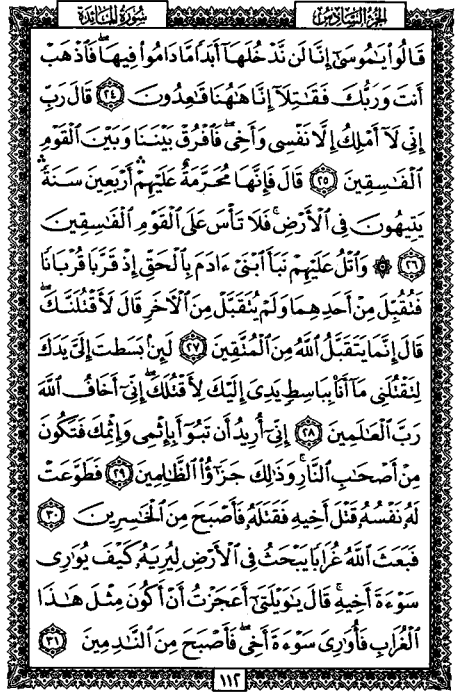 سُورَةُ المَائدَة
الجُزءُ السَّادسُ
قَالُوا۟ يَٰمُوسَىٰٓ إِنَّا لَن نَّدْخُلَهَآ أَبَدًا مَّا دَامُوا۟ فِيهَا ۖ فَٱذْهَبْ
أَنتَ وَرَبُّكَ فَقَٰتِلَآ إِنَّا هَٰهُنَا قَٰعِدُونَ ٢٤ قَالَ رَبِّ
إِنِّى لَآ أَمْلِكُ إِلَّا نَفْسِى وَأَخِى ۖ فَٱفْرُقْ بَيْنَنَا وَبَيْنَ ٱلْقَوْمِ
ٱلْفَٰسِقِينَ ٢٥ قَالَ فَإِنَّهَا مُحَرَّمَةٌ عَلَيْهِمْ ۛ أَرْبَعِينَ سَنَةً ۛ
يَتِيهُونَ فِى ٱلْأَرْضِ ۚ فَلَا تَأْسَ عَلَى ٱلْقَوْمِ ٱلْفَٰسِقِينَ
٢٦ ۞ وَٱتْلُ عَلَيْهِمْ نَبَأَ ٱبْنَىْ ءَادَمَ بِٱلْحَقِّ إِذْ قَرَّبَا قُرْبَانًا
فَتُقُبِّلَ مِنْ أَحَدِهِمَا وَلَمْ يُتَقَبَّلْ مِنَ ٱلْءَاخَرِ قَالَ لَأَقْتُلَنَّكَ ۖ
قَالَ إِنَّمَا يَتَقَبَّلُ ٱللَّهُ مِنَ ٱلْمُتَّقِينَ ٢٧ لَئِنۢ بَسَطتَ إِلَىَّ يَدَكَ
لِتَقْتُلَنِى مَآ أَنَا۠ بِبَاسِطٍ يَدِىَ إِلَيْكَ لِأَقْتُلَكَ ۖ إِنِّىٓ أَخَافُ ٱللَّهَ
رَبَّ ٱلْعَٰلَمِينَ ٢٨ إِنِّىٓ أُرِيدُ أَن تَبُوٓأَ بِإِثْمِى وَإِثْمِكَ فَتَكُونَ
مِنْ أَصْحَٰبِ ٱلنَّارِ ۚ وَذَٰلِكَ جَزَٰٓؤُا۟ ٱلظَّٰلِمِينَ ٢٩ فَطَوَّعَتْ
لَهُۥ نَفْسُهُۥ قَتْلَ أَخِيهِ فَقَتَلَهُۥ فَأَصْبَحَ مِنَ ٱلْخَٰسِرِينَ ٣٠
فَبَعَثَ ٱللَّهُ غُرَابًا يَبْحَثُ فِى ٱلْأَرْضِ لِيُرِيَهُۥ كَيْفَ يُوَٰرِى
سَوْءَةَ أَخِيهِ ۚ قَالَ يَٰوَيْلَتَىٰٓ أَعَجَزْتُ أَنْ أَكُونَ مِثْلَ هَٰذَا
ٱلْغُرَابِ فَأُوَٰرِىَ سَوْءَةَ أَخِى ۖ فَأَصْبَحَ مِنَ ٱلنَّٰدِمِينَ ٣١
١١٢